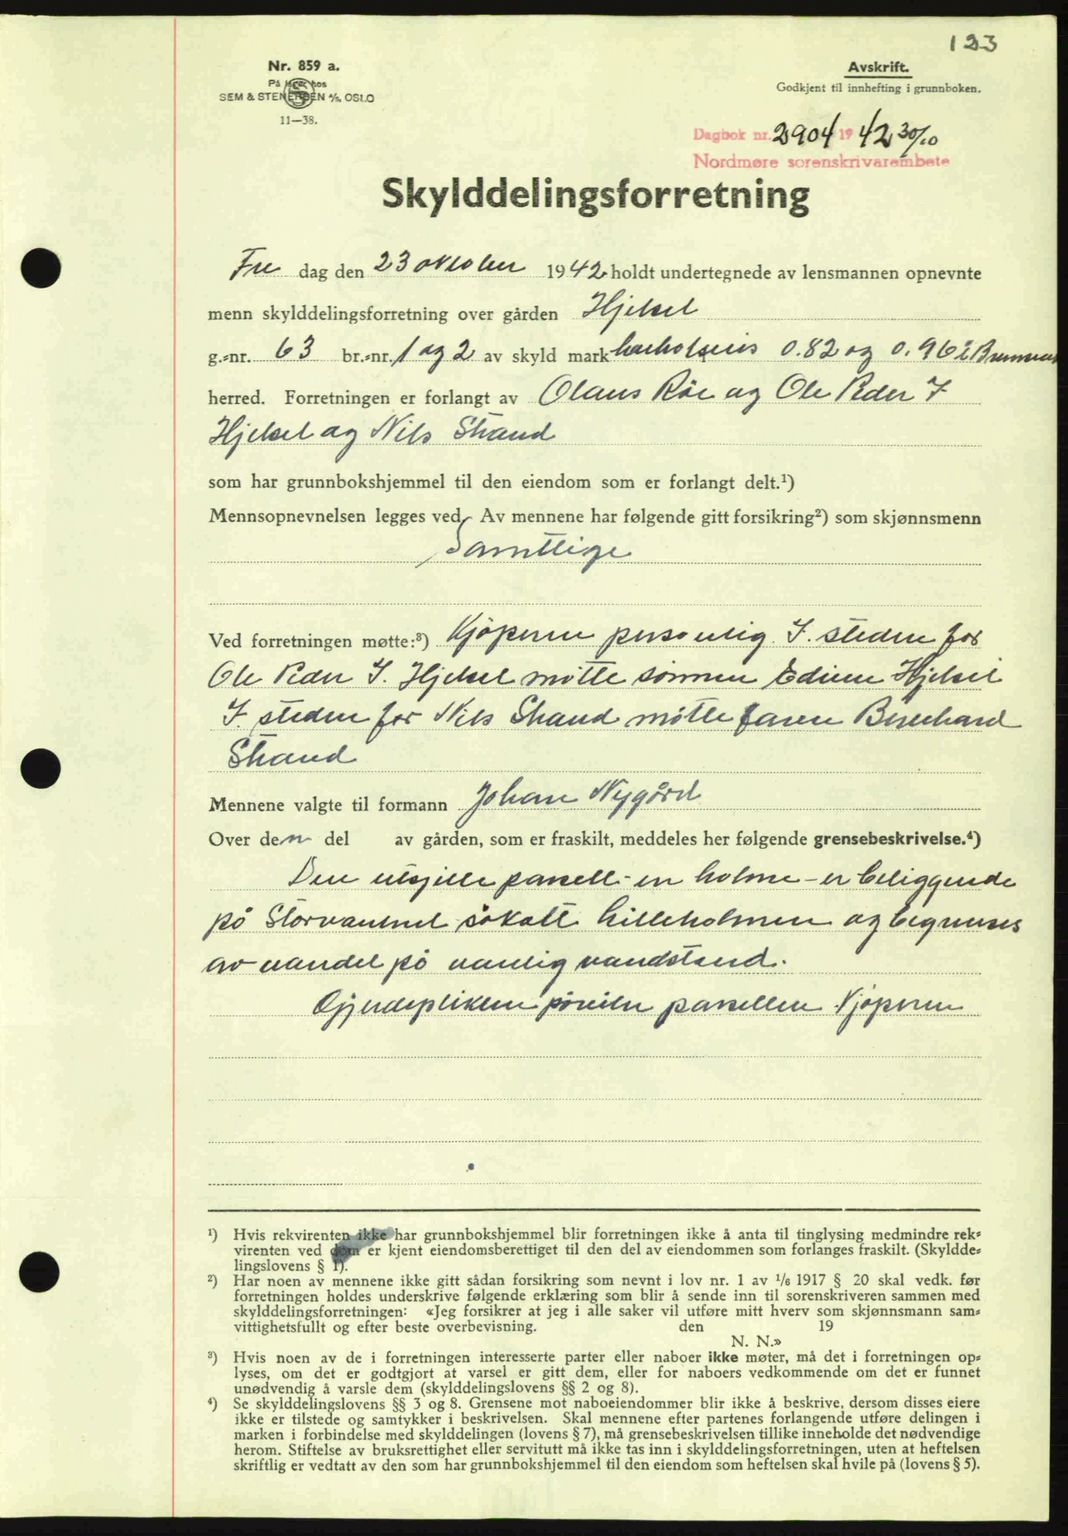 123
Nr. 859 a.
På lager hos
SEM & STENERSEN A/S, OSLO
11—38.
Avskrift.
Godkjent til innhefting i grunnboken.
Dagbok nr. 2904 1942 30/10
Nordmøre sorenskrivarembete
Skylddelingsforretning
Fre dag den 23 oktober 1942 holdt undertegnede av lensmannen opnevnte
menn skylddelingsforretning over gården Hjelsel
g.=nr. 63 br.=nr. 1 og 2 av skyld mark 0.82 og 0.96 i
herred. Forretningen er forlangt av Olaus Röe og Ole Peder I
Hjelsel og Nils Strand
som har grunnbokshjemmel til den eiendom som er forlangt delt.¹)
Mennsopnevnelsen legges ved. Av mennene har følgende gitt forsikring²) som skjønnsmenn
Samtlige
Ved forretningen møtte:³) Kjöperen personlig I. steden for
Ole Peder I. Hjelsel mötte sönnen Edvin Hjelsel
I. steden for Nils Strand mötte faren Bernhard
Strand
Mennene valgte til formann Johan Nygård
Over den del av gården, som er fraskilt, meddeles her følgende grensebeskrivelse.⁴)
Den utskilte parsell - en holme - er beliggende
på Storvannet såkalt Lilleholmen og begrenses
av vandet på vanlig vandstand.
Gjerdeplikten påhviler parsellen Kjöperen
¹) Hvis rekvirenten ikke har grunnbokshjemmel blir forretningen ikke å anta til tinglysing medmindre rek=
virenten ved dom er kjent eiendomsberettiget til den del av eiendommen som forlanges fraskilt. (Skyldde=
lingslovens § 1).
²) Har noen av mennene ikke gitt sådan forsikring som nevnt i lov nr. 1 av 1/6 1917 § 20 skal vedk. før
forretningen holdes underskrive følgende erklæring som blir å sende inn til sorenskriveren sammen med
skylddelingsforretningen: «Jeg forsikrer at jeg i alle saker vil utføre mitt hverv som skjønnsmann sam=
vittighetsfullt og efter beste overbevisning. den 19
N. N.»
³) Hvis noen av de i forretningen interesserte parter eller naboer ikke møter, må det i forretningen op=
lyses, om det er godtgjort at varsel er gitt dem, eller for naboers vedkommende om det er funnet
unødvendig å varsle dem (skylddelingslovens §§ 2 og 8).
⁴) Se skylddelingslovens §§ 3 og 8. Grensene mot naboeiendommer blir ikke å beskrive, dersom disses eiere
ikke er tilstede og samtykker i beskrivelsen. Skal mennene efter partenes forlangende utføre delingen i
marken i forbindelse med skylddelingen (lovens § 7), må grensebeskrivelsen tillike inneholde det nødvendige
herom. Stiftelse av bruksrettighet eller servitutt må ikke tas inn i skylddelingsforretningen, uten at heftelsen
skriftlig er vedtatt av den som har grunnbokshjemmel til den eiendom som heftelsen skal hvile på (lovens § 5).